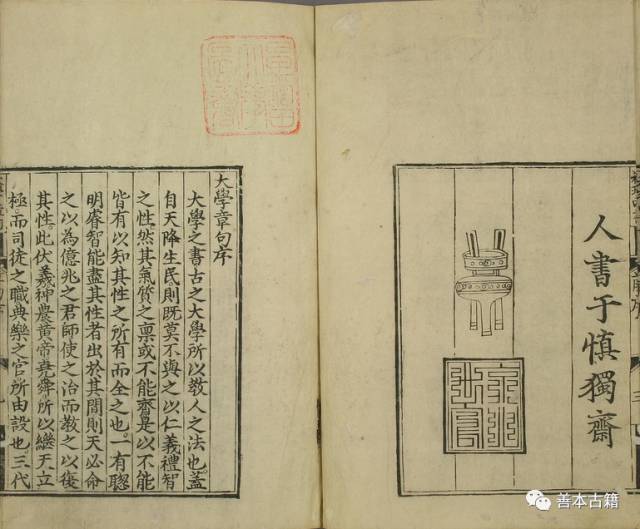 人書于慎獨齋
大學章句序
大學之書古之大學所以教人之法也蓋
自天降生民則既莫不與之以仁義禮智
之性然其氣質之稟或不能齊是以不能
皆有以知其性之所有而全之也一有聦
明睿智能盡其性者出於其間則天必命
之以為億兆之君師使之治而教之以復
其性此伏羲神農黃帝堯舜所以繼天立
極而司徒之職典樂之官所由設也三代
善本古籍